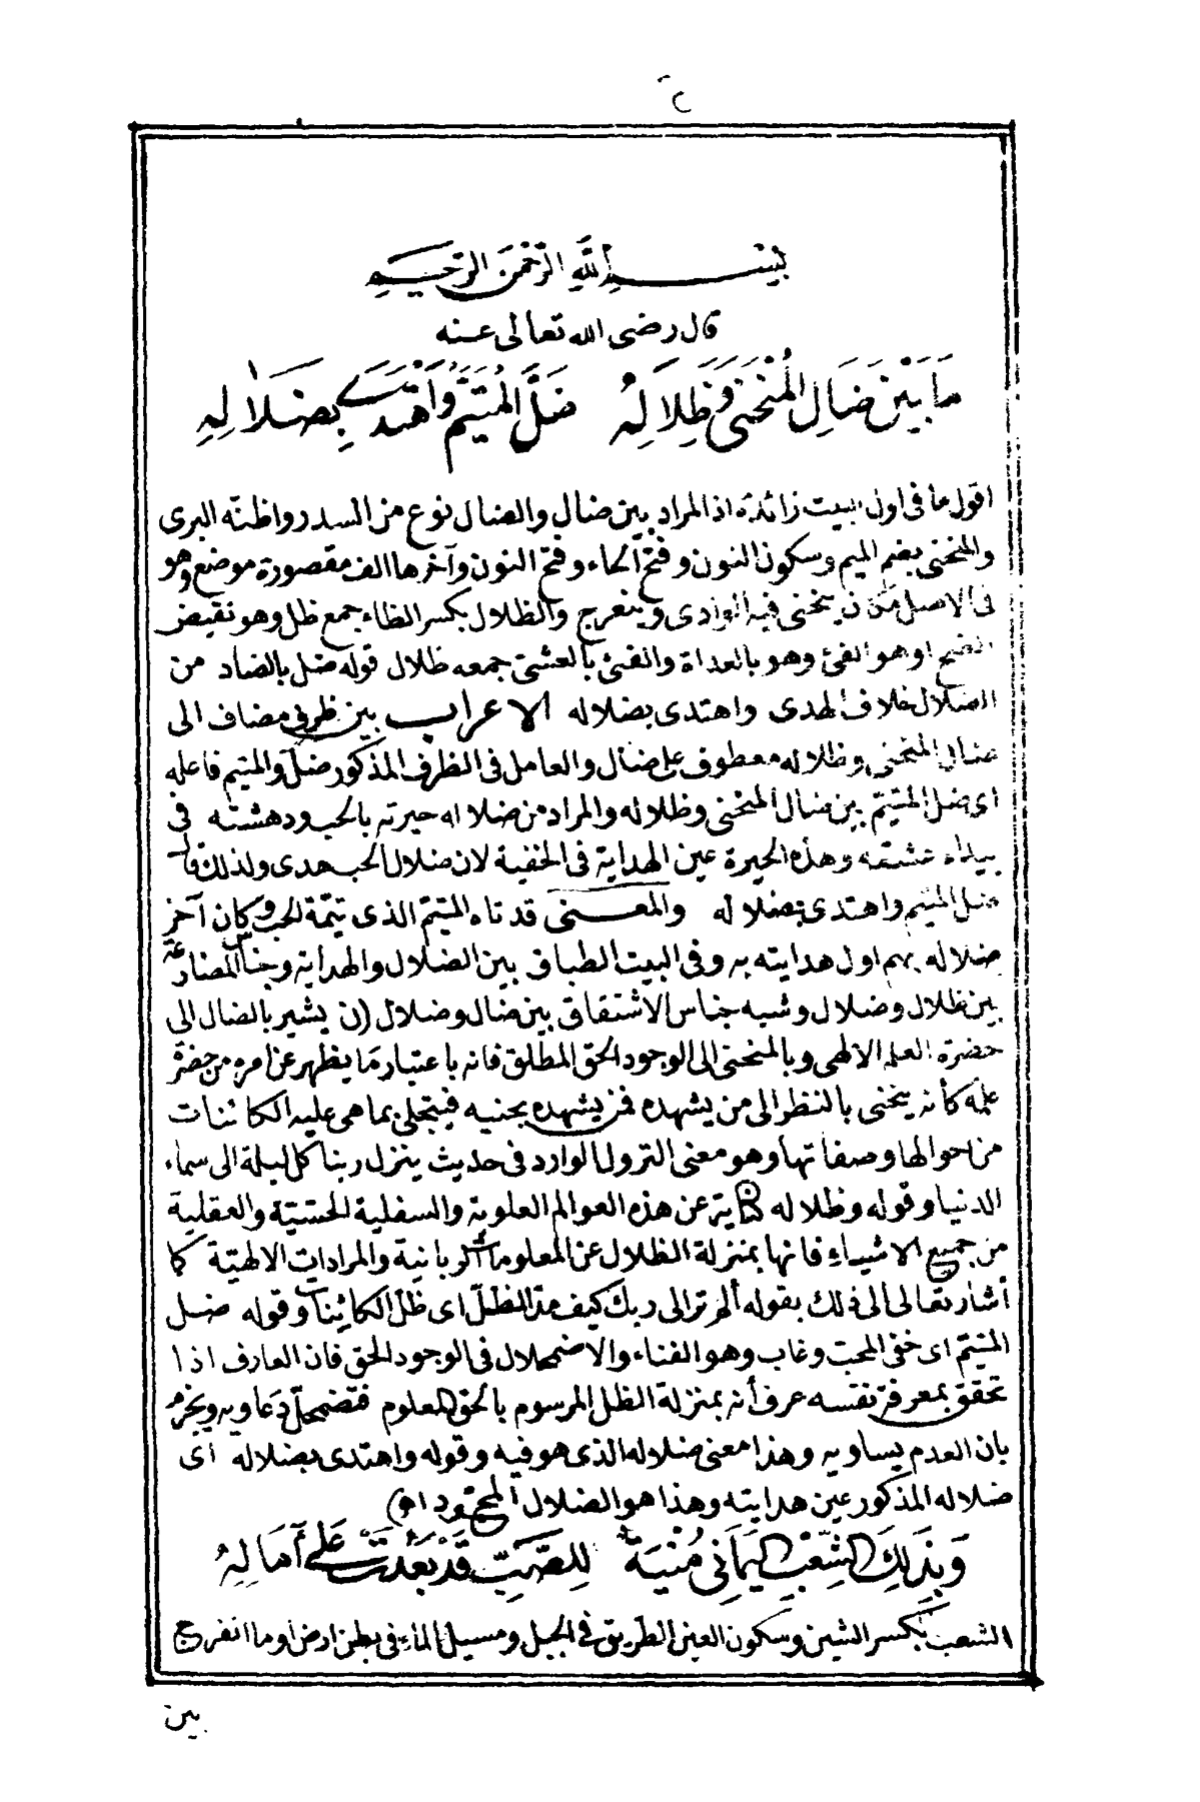 بسم الله الرحمن الرحيم
قال رضى الله تعالى عنه
مَا بَيْنَ ضَالِ الْمُنْحَنَى وَظِلَالِهِ ضَلَّ الْمُتَيَّمُ وَاهْتَدَى بِضَلَالِهِ
اقول ما فى اول البيت زائدة اذ المراد بين ضال والضال نوع من السدر واظنه البرى
والمنحنى بضم الميم وسكون النون وفتح الحاء وفتح النون وآخرها الف مقصورة موضع وهو
فى الاصل مكان ينحنى فيه الوادى وينعرج والظلال بكسر الظاء جمع ظل وهو نقيض
الضح او هو الفئ وهو بالغداة والفئ بالعشى جمعه ظلال قوله ضل بالضاد من
الضلال خلاف الهدى واهتدى بضلاله الاعراب بين ظرف مضاف الى
ضال المنحنى وظلاله معطوف على ضال والعامل فى الظرف المذكور ضل والمتيم فاعله
اى ضل المتيم بين ضال المنحنى وظلاله والمراد من ضلاله حيرته بالحب ودهشته فى
بيداء عشقه وهذه الحيرة عين الهداية فى الخفية لان ضلال الحب هدى ولذلك قال
ضل المتيم واهتدى بضلاله والمعنى قد تاه المتيم الذى تيمه الحب وكان آخر
ضلاله بهم اول هدايته به وفى البيت الطباق بين الضلال والهداية وجناس المضارعة
بين ظلال وضلال وشبه جناس الاشتقاق بين ضال وضلال (ن يشير بالضال الى
حضرة العلم الالهى وبالمنحنى الى الوجود الحق المطلق فانه باعتبار ما يظهر عن امره من حضرة
علمه كأنه ينحنى بالنظر الى من يشهده فمن يشهده بجنيه فيتجلى بما هى عليه الكائنات
من احوالها وصفاتها وهو معنى النزول الوارد فى حديث ينزل ربنا كل ليلة الى سماء
الدنيا وقوله وظلاله كناية عن هذه العوالم العلوية والسفلية الحسّيّة والعقلية
من جميع الاشياء فانها بمنزلة الظلال عن المعلومات الربانية والمرادات الالهية كما
أشار تعالى الى ذلك بقوله ألم تر الى ربك كيف مد الظل اى ظل الكائنات وقوله ضل
المتيم اى خفى المحب وغاب وهو الفناء والاضمحلال فى الوجود الحق فان العارف اذا
تحقق بمعرفة نفسه عرف أنه بمنزلة الظل المرسوم بالحق المعلوم فتضمحل دعاويه ويجزم
بان العدم يساويه وهذا معنى ضلاله الذى هو فيه وقوله واهتدى بضلاله اى
ضلاله المذكور عين هدايته وهذا هو الضلال المحمود اه)
وَبِذَلِكَ الشِّعْبِ الْيَمَانِى مُنْيَةٌ لِلصَّبِّ قَدْ بَعُدَتْ عَلَى آمَالِهِ
الشعب بكسر الشين وسكون العين الطريق فى الجبل ومسيل الماء فى بطن ارض او ما انفرج
بين